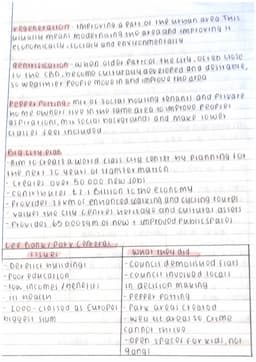 regeneration - improving a part of the urban area This
usually means modernising the area and improving it
economically, socially and environmentally
gentrification - when older parts of the city, often close
to the CBD, become culturally developed and desirable,
so wealthier people move in and improve the area
Pepper Potting - mix of social housing tenants and private
home owners live in the same area to improve peoples
aspirations, mix social backgrounds and make lower
classes feel included
Big City Plan
- Aim to create a world class city center by planning for
the next 20 years of transformation
- creates over 50 000 new jobs
- contributes £2.1 billion to the economy
- Provides 28km of enhanced walking and cycling routes
- values the city centres heritage and cultural assets
- Provides 65 000 sqm of new + improved public spaces
Lee Bank/Park Central
Issues
What they did
- Derelict buildings
- poor education
- low incomes/benefits
- ill health
- 2000 - classed as Europes
biggest slum
- Council demolished flats
- council involved locals
in decision making
- Pepper potting
- Park areas created
- well lit areas so crime
cannot thrive
- open spaces for kids, not
gangs